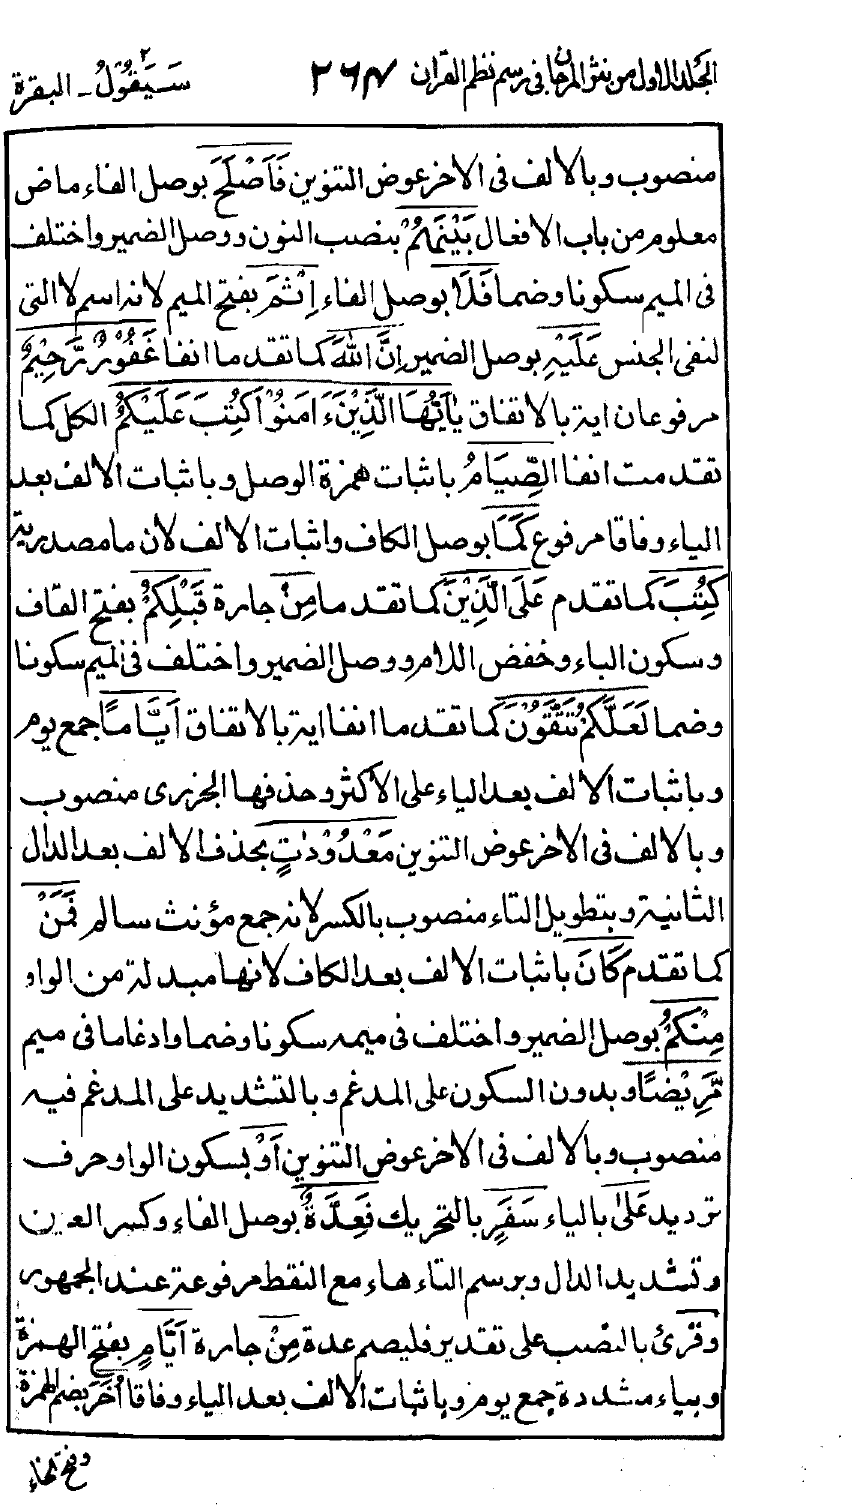 الجلد الاول من نثر المرجان فى رسم نظم القرآن ٢٦٧ سَيَقُوْلُ ٢ ـ البقرة
منصوب وبالالف فى الاخر عوض التنوين فَاَصْلَحَ بوصل الفاء ماض
معلوم من باب الافعال بَيْنَهُمْ بنصب النون ووصل الضمير واختلف
فى الميم سكونا وضما فَلَا بوصل الفاء اِثْمَ بفتح الميم لانه اسم لا التى
لنفى الجنس عَلَيْهِ بوصل الضمير اِنَّ اللّٰهَ كما تقدم ما انفا غَفُوْرٌ رَّحِيْمٌ
مرفوعان اية بالاتفاق يٰاَيُّهَا الَّذِيْنَ ءَامَنُوْا كُتِبَ عَلَيْكُمُ الكل كما
تقدمت انفا الصِّيَامُ باثبات همزة الوصل وباثبات الالف بعد
الياء وفاقا مرفوع كَمَا بوصل الكاف واثبات الالف لان ما مصدرية
كُتِبَ كما تقدم عَلَى الَّذِيْنَ كما تقدما مِنْ جارة قَبْلِكُمْ بفتح القاف
وسكون الباء وخفض اللام ووصل الضمير واختلف فى الميم سكونا
وضما لَعَلَّكُمْ تَتَّقُوْنَ كما تقدما انفا اية بالاتفاق اَيَّامًا جمع يوم
وباثبات الالف بعد الياء على الاكثر وحذفها الجزرى منصوب
وبالالف فى الاخر عوض التنوين مَعْدُوْدٰتٍ بحذف الالف بعد الدال
الثانية وبتطويل التاء منصوب بالكسر لانه جمع مؤنث سالم فَمَنْ
كما تقدم كَانَ باثبات الالف بعد الكاف لانها مبدلة من الواو
مِنْكُمْ بوصل الضمير واختلف فى ميمه سكونا وضما وادغاما فى ميم
مَّرِيْضًا وبدون السكون على المدغم وبالتشديد على المدغم فيه
منصوب وبالالف فى الاخر عوض التنوين اَوْ بسكون الواو حرف
ترديد عَلٰى بالياء سَفَرٍ بالتحريك فَعِدَّةٌ بوصل الفاء وكسر العين
وتشديد الدال وبرسم التاء هاء مع النقط مرفوعة عند الجمهور
وقرئ بالنصب على تقدير فليصم عدة مِنْ جارة اَيَّامٍ بفتح الهمزة
وبياء مشددة جمع يوم وباثبات الالف بعد الياء وفاقا اُخَرَ بضم الهمزة
وفتح الخاء